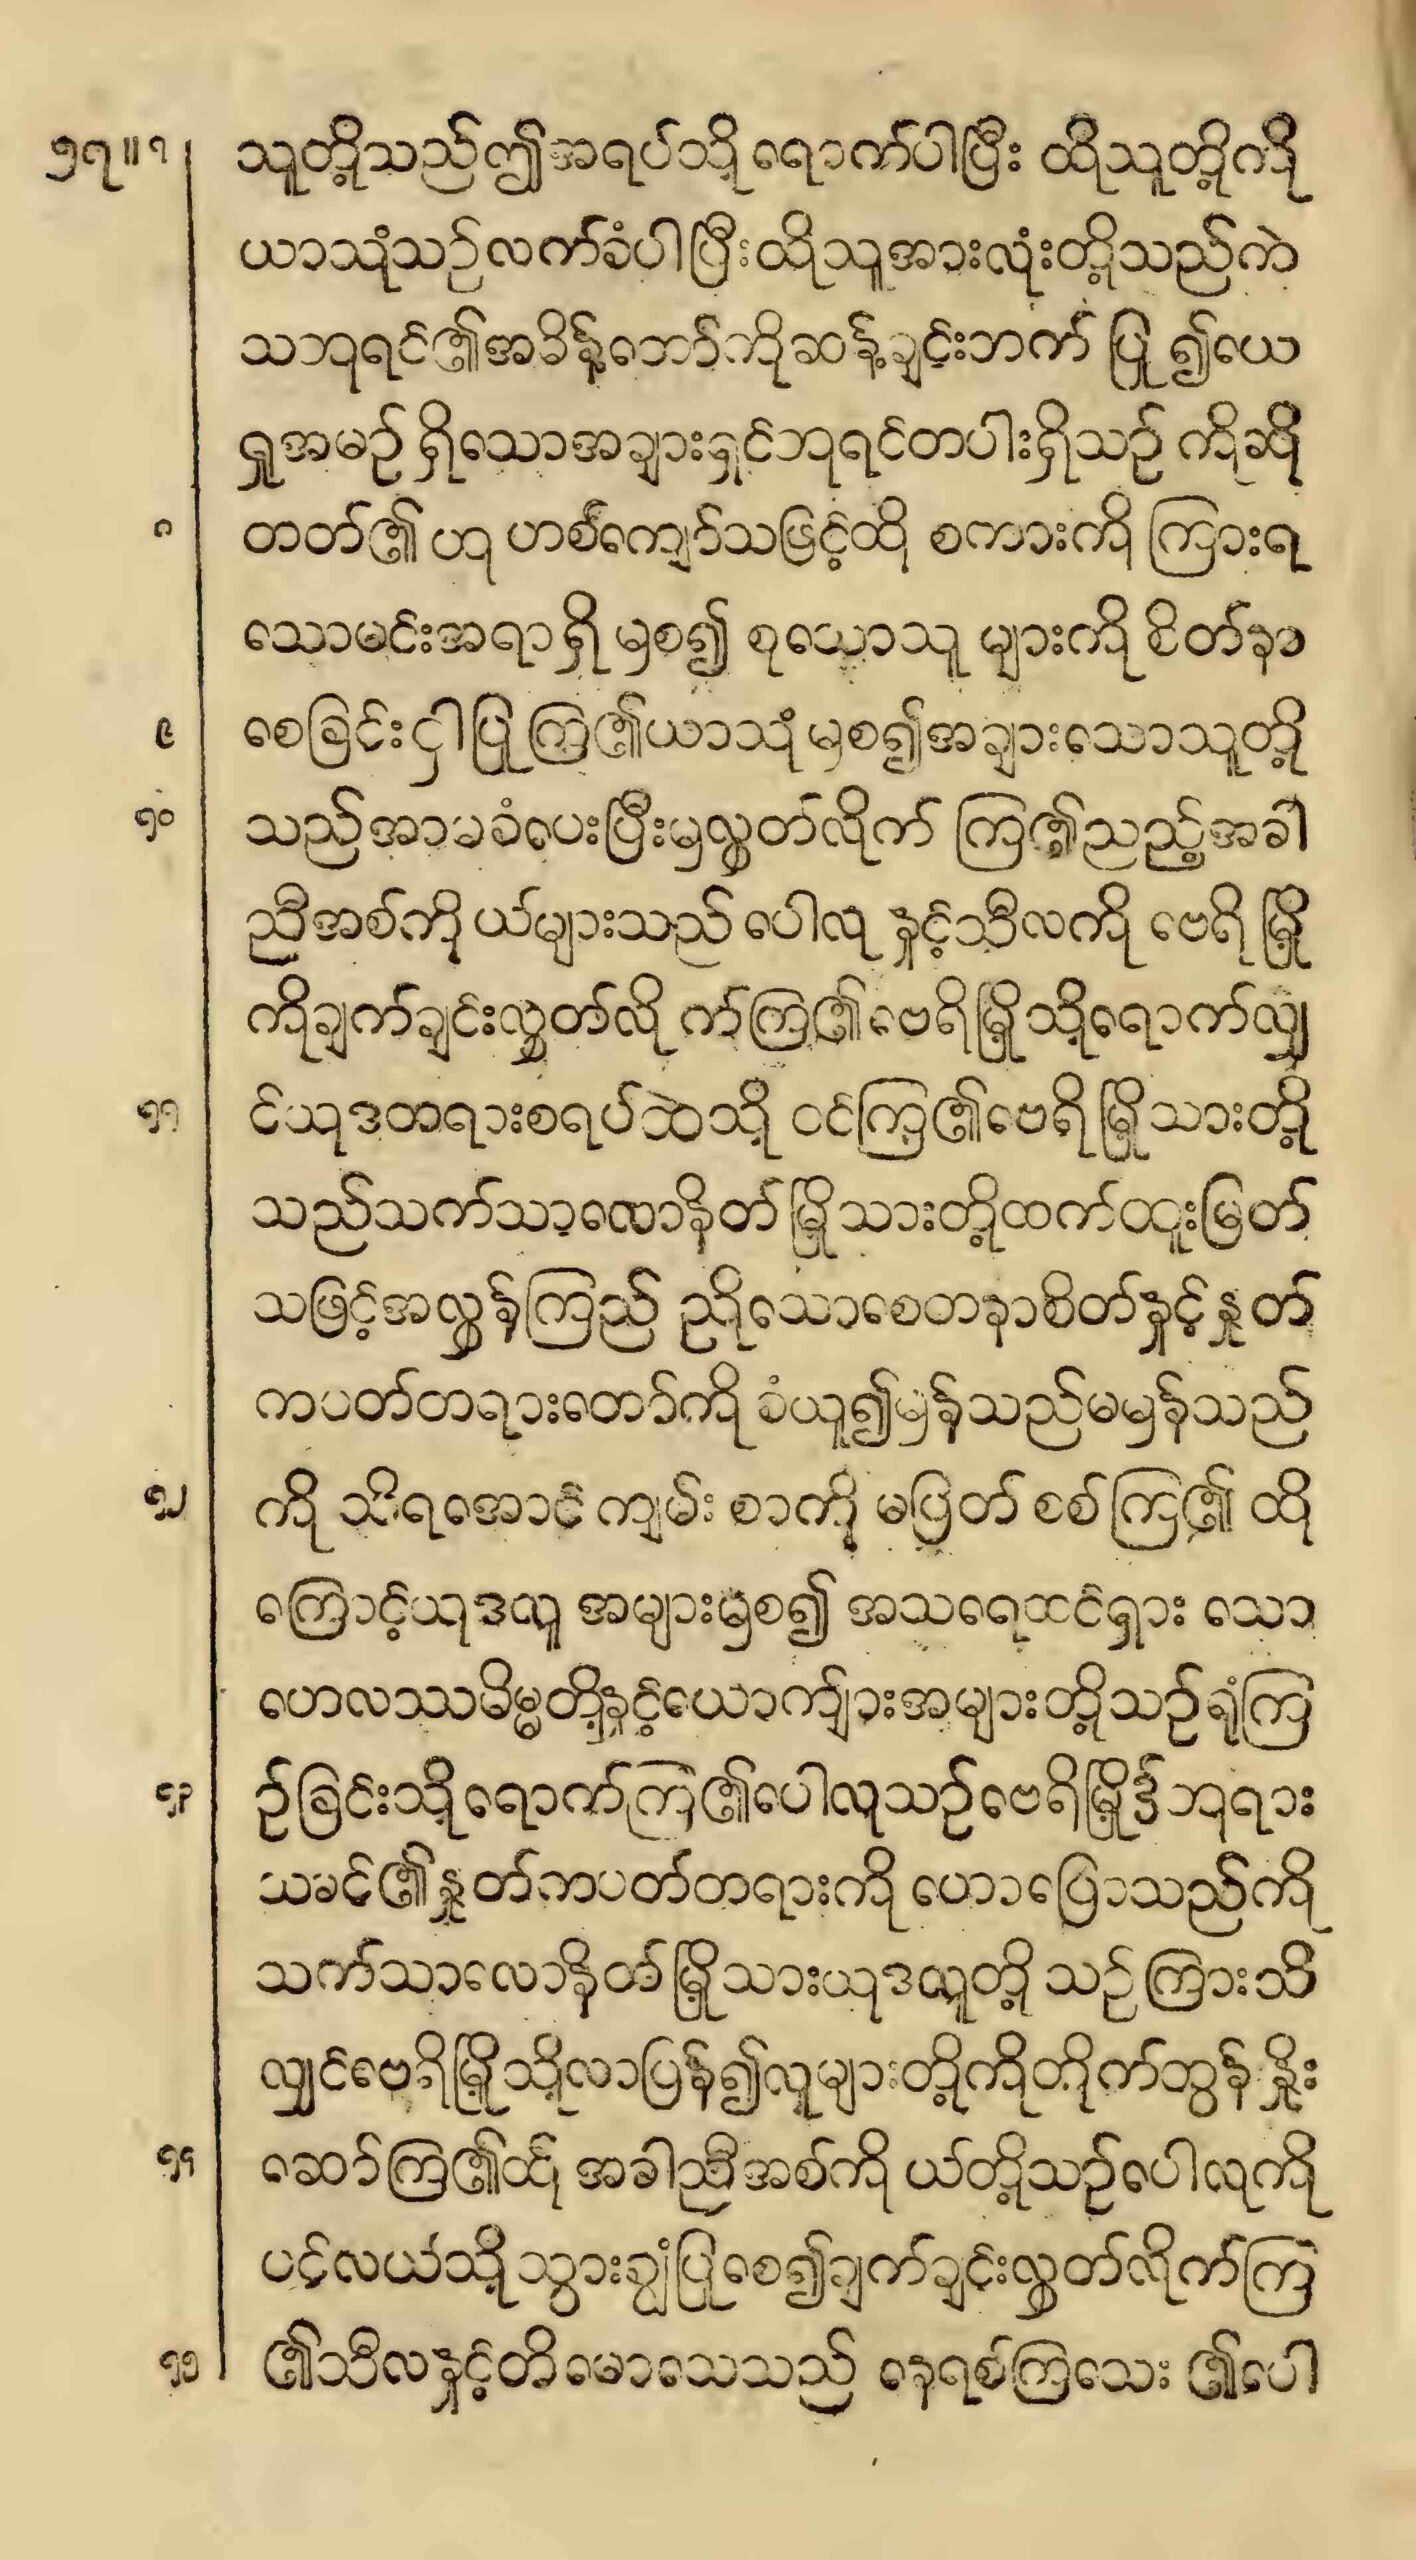 ၁၇။ ၇ သူတို့သည်ဤအရပ်သို့ရောက်ပါပြီး ထိုသူတို့ကို
ယာသုံသဉ်လက်ခံပါပြီးထိုသူအားလုံးတို့သည်ကဲ
သဘုရင်၏အမိန့်တော်ကိုဆန့်ချင်းဘက် ပြု ၍ယေ
ရှုအမဉ် ရှိသောအချားရှင်ဘုရင်တပါးရှိသဉ် ကိုဆို
၈ တတ်၏ ဟု ဟစ်ကျော်သဖြင့်ထို စကားကို ကြားရ
သောမင်းအရာရှိ မှစ၍ စုသောသူ များကို စိတ်နာ
၉ စေခြင်းငှါပြုကြ၏ယာသုံမှစ၍အချားသောသူတို့
၁၀ သည်အာမခံပေးပြီးမှလွှတ်လိုက် ကြ၏ညည့်အခါ
ညီအစ်ကို ယ်များသည် ပေါလု နှင့်သီလကို ဗေရိ မြို့
ကိုချက်ချင်းလွှတ်လို က်ကြ၏ဗေရိမြို့သို့ရောက်လျှ
၁၁ င်ယုဒတရားစရပ်ထဲသို့ ဝင်ကြ၏ဗေရိမြို့သားတို့
သည်သက်သာလောနိတ်မြို့သားတို့ထက်ထူးမြတ်
သဖြင့်အလွန်ကြည် ညိုသောစေတနာစိတ်နှင့်နှုတ်
ကပတ်တရားတော်ကို ခံယူ၍မှန်သည်မမှန်သည်
၁၂ ကို သိရအောင် ကျမ်း စာကို မပြတ် စစ်ကြ၏ ထို
ကြောင့်ယုဒလူ အများမှစ၍ အသရေထင်ရှား သော
ဟေလဿမိမ္မတို့နှင့်ယောကျ်ားအများတို့သဉ်ရုံကြ
၁၃ ဉ်ခြင်းသို့ရောက်ကြ၏ပေါလုသဉ်ဗေရိမြို့၌ဘုရား
သခင်၏နှုတ်ကပတ်တရားကို ဟောပြောသည်ကို
သက်သာလောနိတ်မြို့သားယုဒလူတို့ သဉ်ကြားသိ
လျှင်ဗေရိမြို့သို့လာပြန်၍လူများတို့ကိုတိုက်တွန်းနှိုး
၁၄ ဆော်ကြ၏ထို အခါညီအစ်ကို ယ်တို့သဉ်ပေါလုကို
ပင့်လယ်သို့သွားချွံပြုစေ၍ချက်ချင်းလွှတ်လိုက်ကြ
၁၅ ၏သီလနှင့်တိမောသေသည် နေရစ်ကြသေး ၏ပေါ